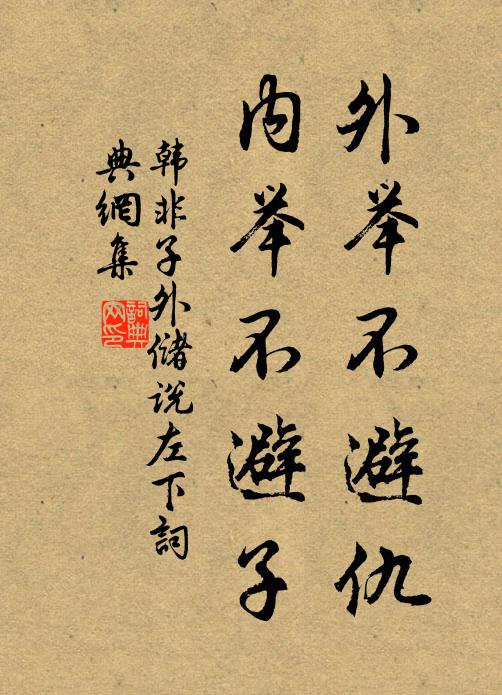 外举不避仇
内举不避子
韩非子外儲说左下詞
典網集
詞典
网印